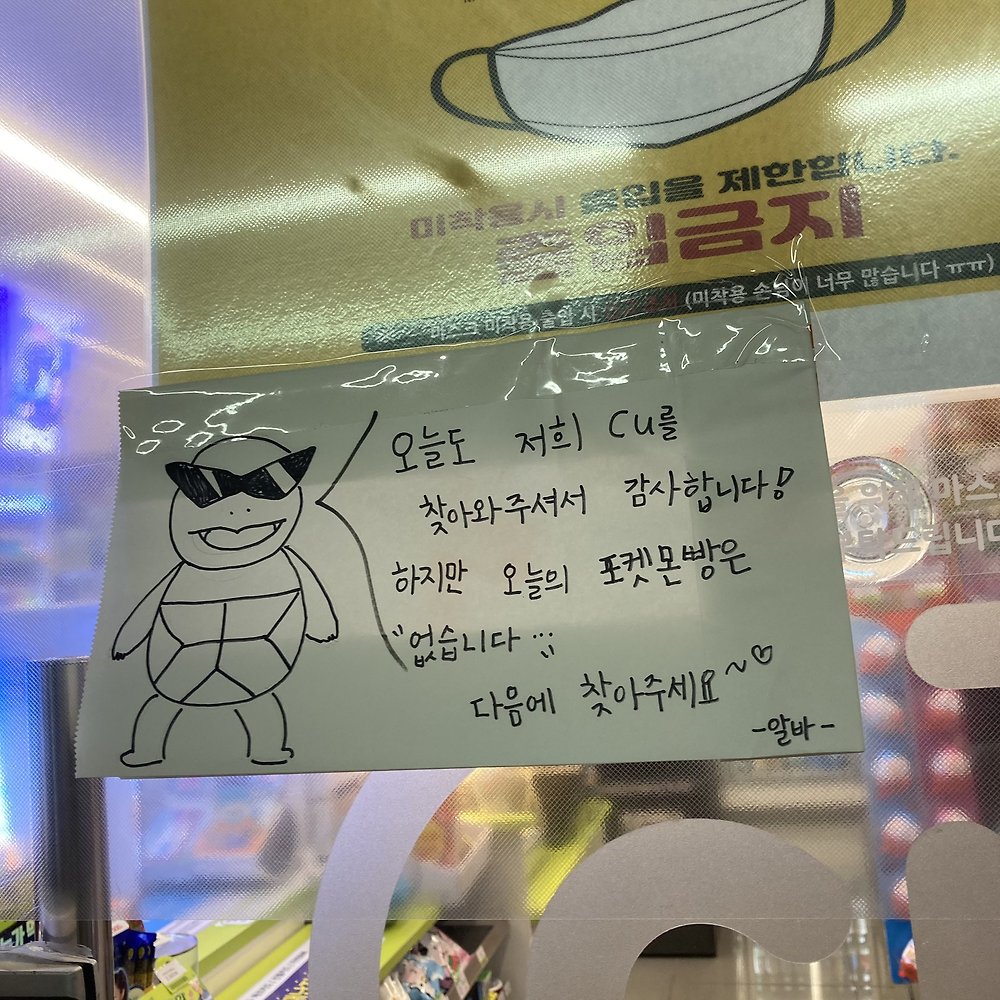 미착용시 출입을 제한합니다.
출입금지
마스크 미착용 출입 시 (미착용 손님이 너무 많습니다 ㅠㅠ)
오늘도 저희 CU를
찾아와주셔서 감사합니다!
하지만 오늘의 포켓몬빵은
"없습니다 ;;;
다음에 찾아주세요~♡
-알바-
마스
립니다